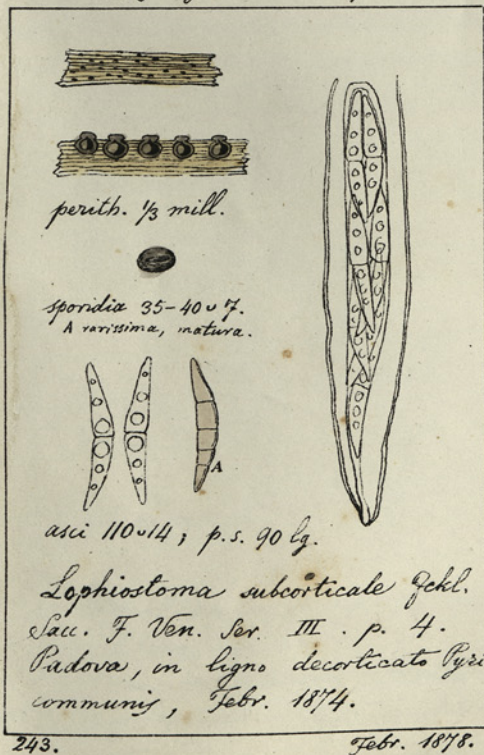 perith. ⅓ mill.
sporidia 35–40 ᴗ 7.
A rarissima, matura.
A
asci 110 ᴗ 14 ; p. s. 90 lg.
Lophiostoma subcorticale Fckl.
Sacc. F. Ven. Ser. III. p. 4.
Padova, in ligno decorticato Pyri
communis, Febr. 1874.
243. Febr. 1878.